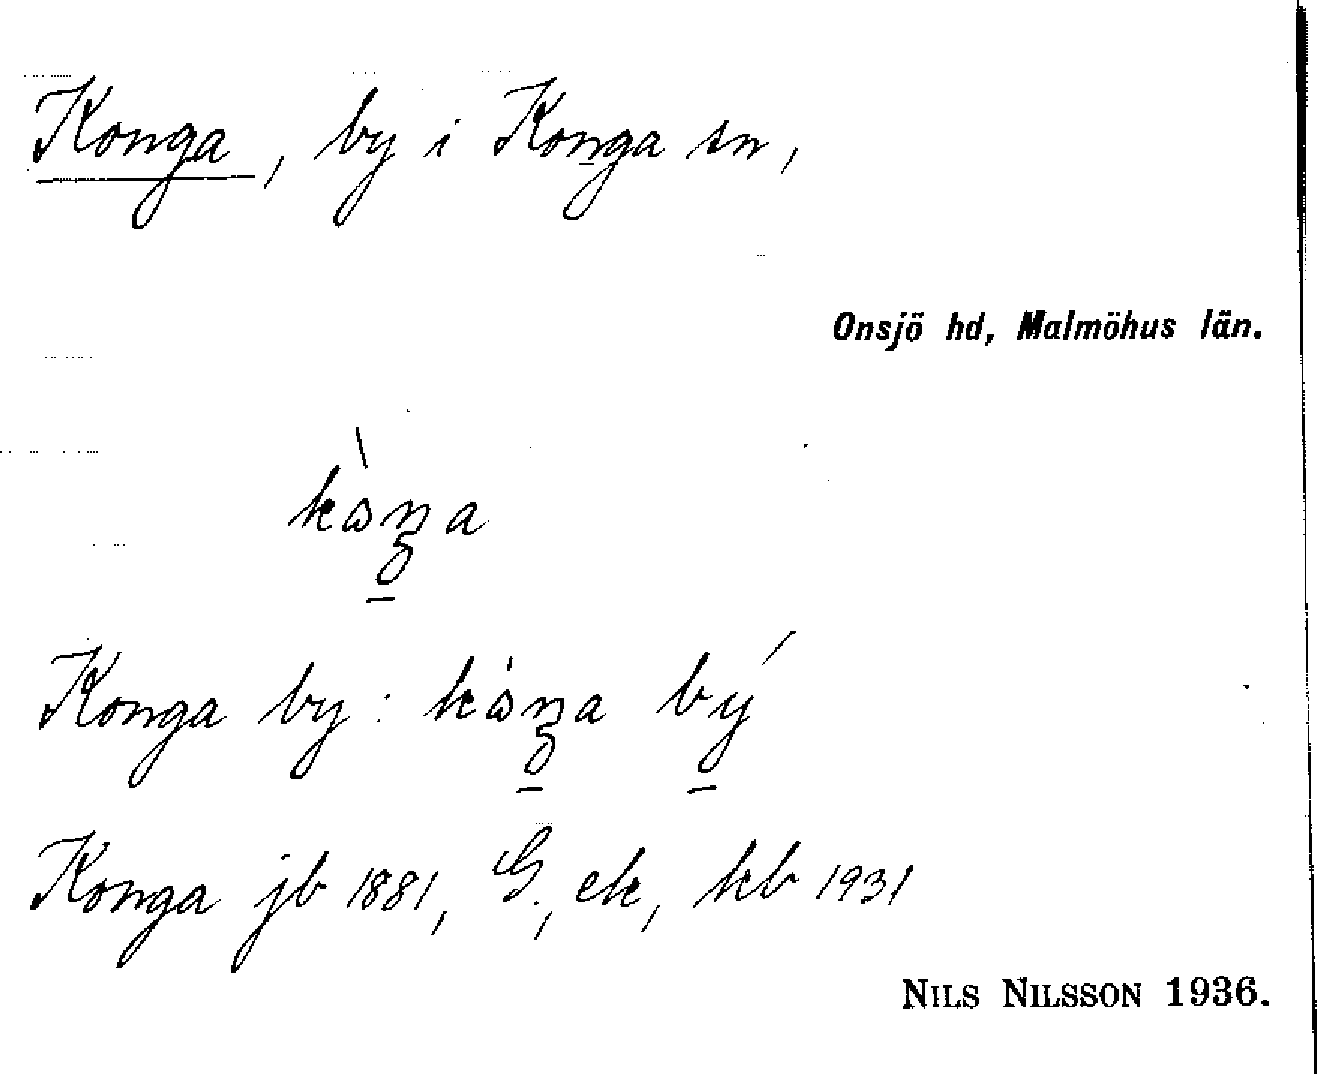 Konga, by i Konga sn,
Onsjö hd, Malmöhus län.
kὼŋa
Konga by: kὼŋa bý
Konga jb 1881, G., ek, kb 1931
NILS NILSSON 1936.